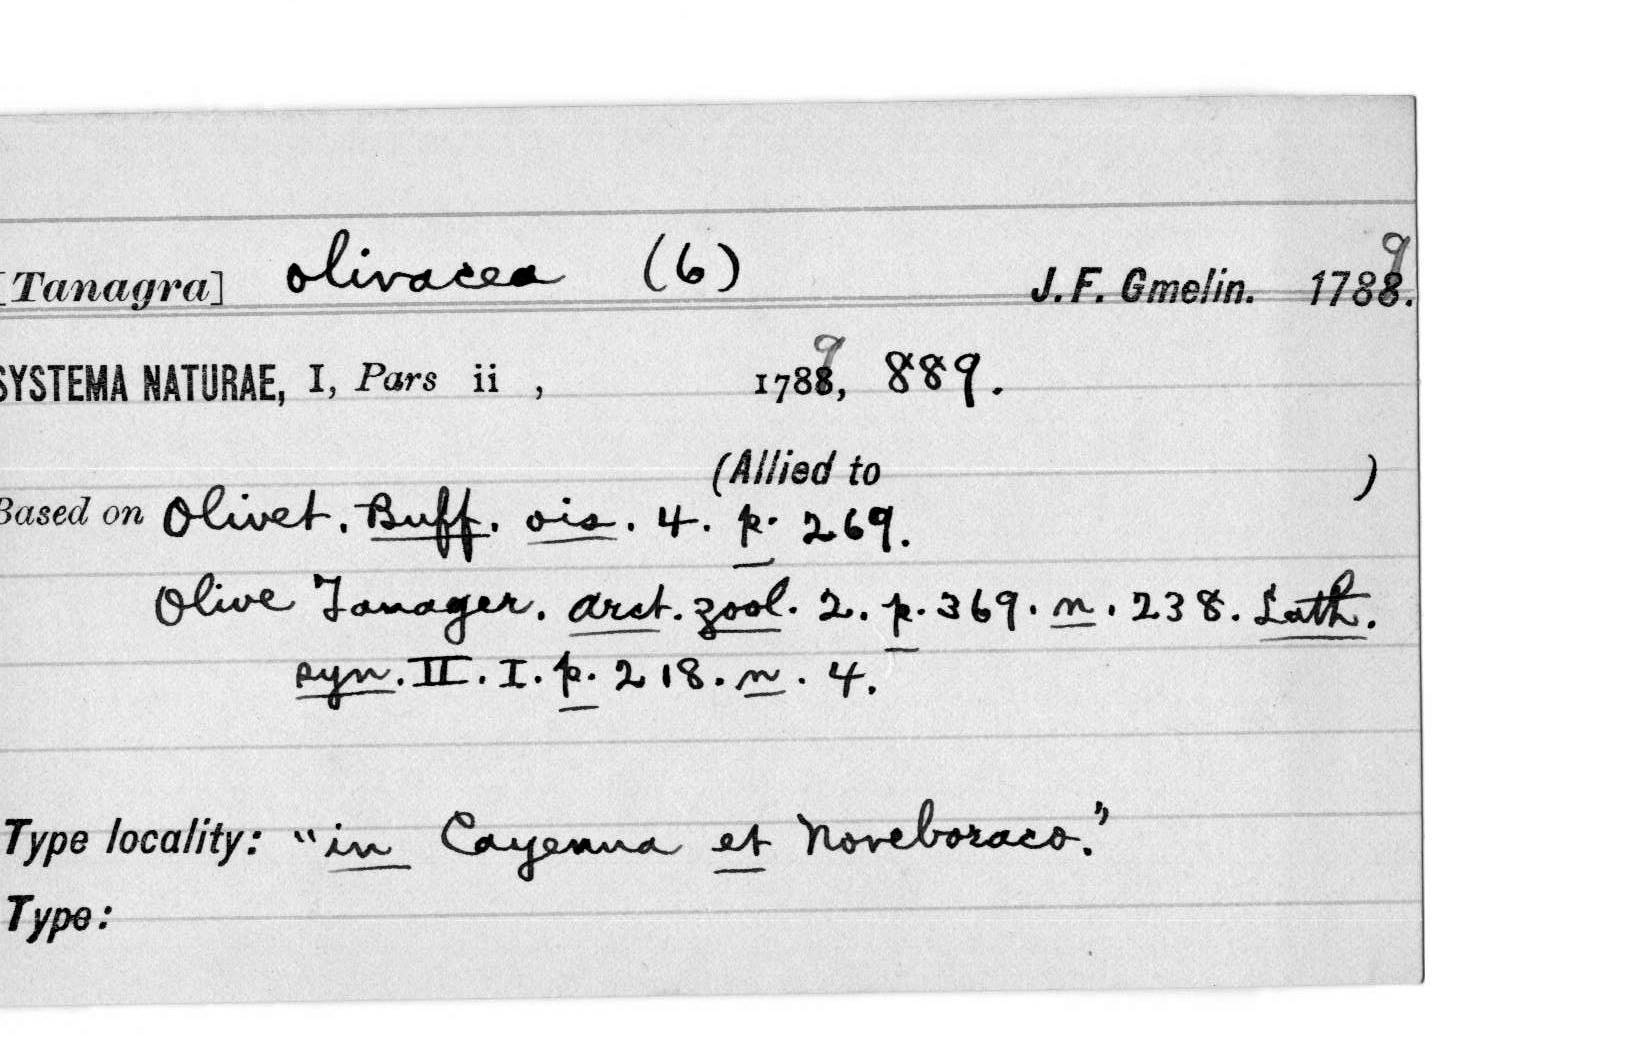 [Tanagra] olivacea (6) J. F. Gmelin. 1788. 9
SYSTEMA NATURAE, I, Pars ii , 1788, 9 889.
(Allied to )
Based on Olivet. Buff. ois. 4. p. 269.
Olive Tanager. arct. zool. 2. p. 369. n. 238. Lath.
syn. II. I. p. 218. n. 4.
Type locality: "in Cayenna et Noveboraco."
Type: